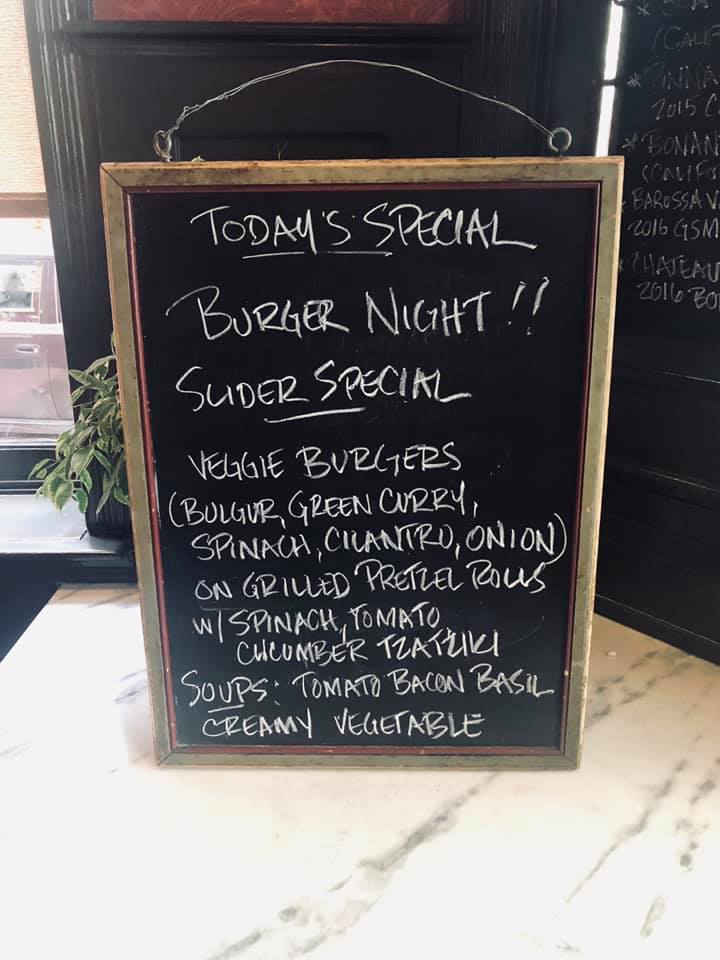 TODAY'S SPECIAL
BURGER NIGHT!!
SLIDER SPECIAL
VEGGIE BURGERS
(BULGUR, GREEN CURRY,
SPINACH, CILANTRO, ONION)
ON GRILLED PRETZEL ROLLS
W/ SPINACH, TOMATO
CUCUMBER TZATZIKI
SOUPS: TOMATO BACON BASIL
CREAMY VEGETABLE
(CALIF
2015 C
* BONAN
(CALIFO
BAROSSA V
2016 GSM
* CHATEAU
2016 BO